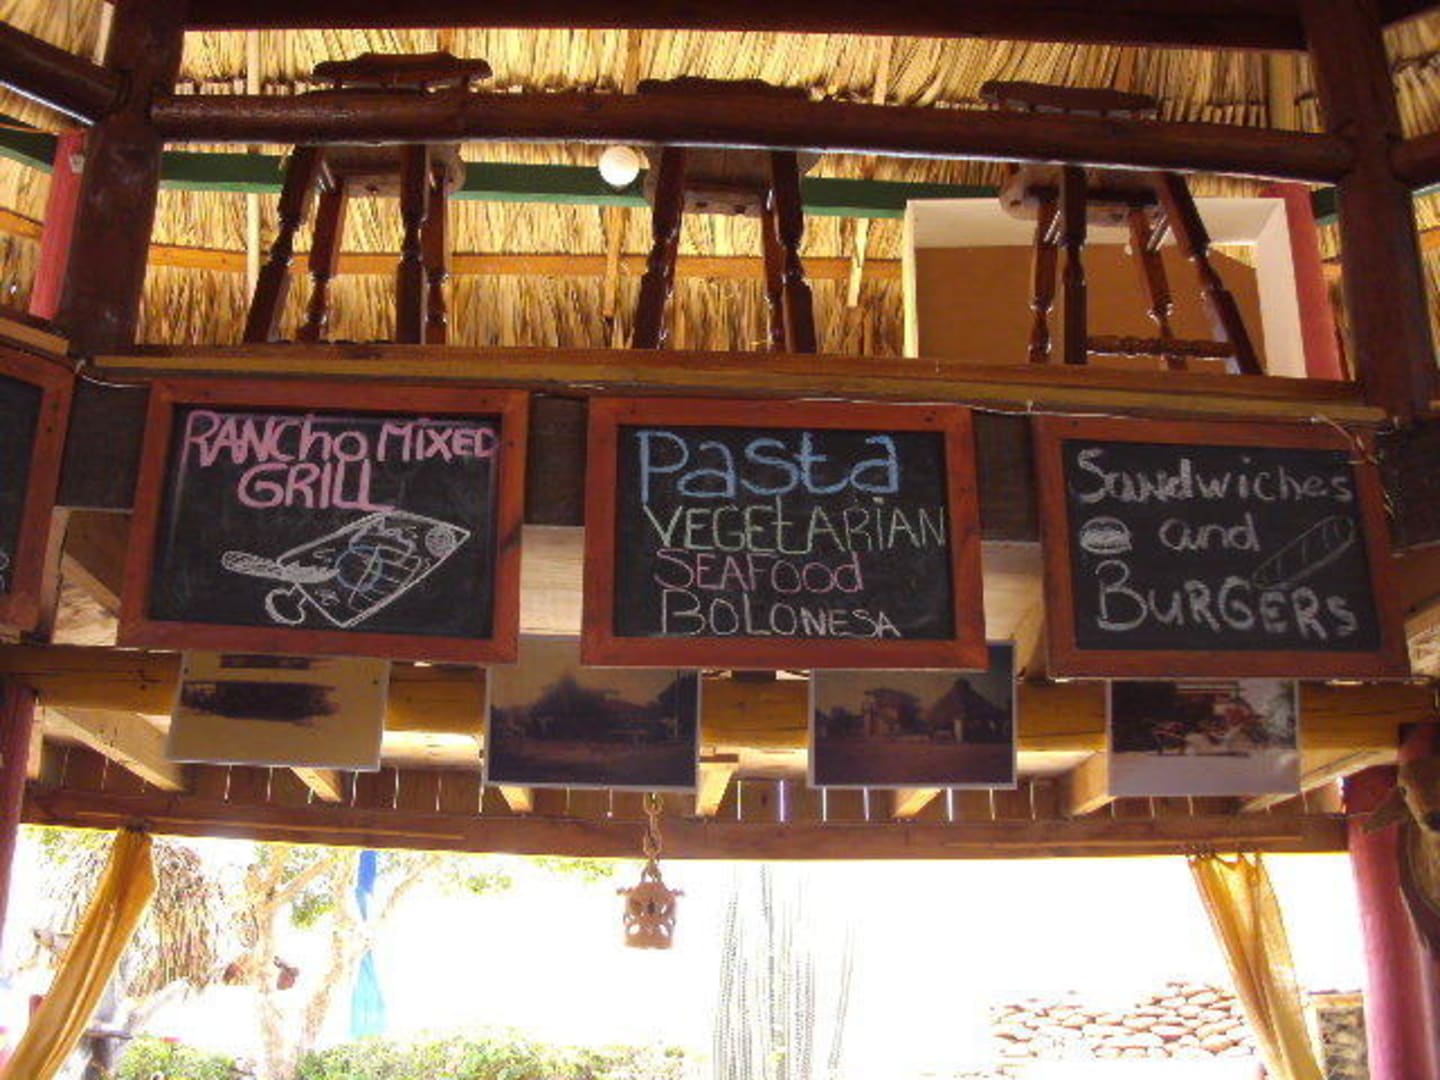 RANCho MiXED
GRILL
Pasta
VEGEtARIAN
SEAFood
BOLONESA
Sandwiches
and
BURGERS